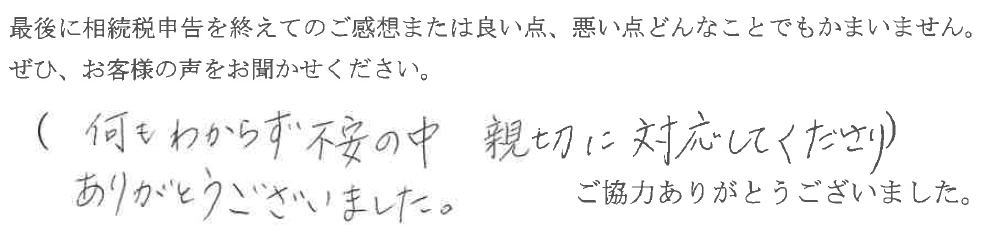 最後に相続税申告を終えてのご感想または良い点、悪い点どんなことでもかまいません。
ぜひ、お客様の声をお聞かせください。
( 何もわからず不安の中 親切に対応してくださり)
ありがとうございました。
ご協力ありがとうございました。